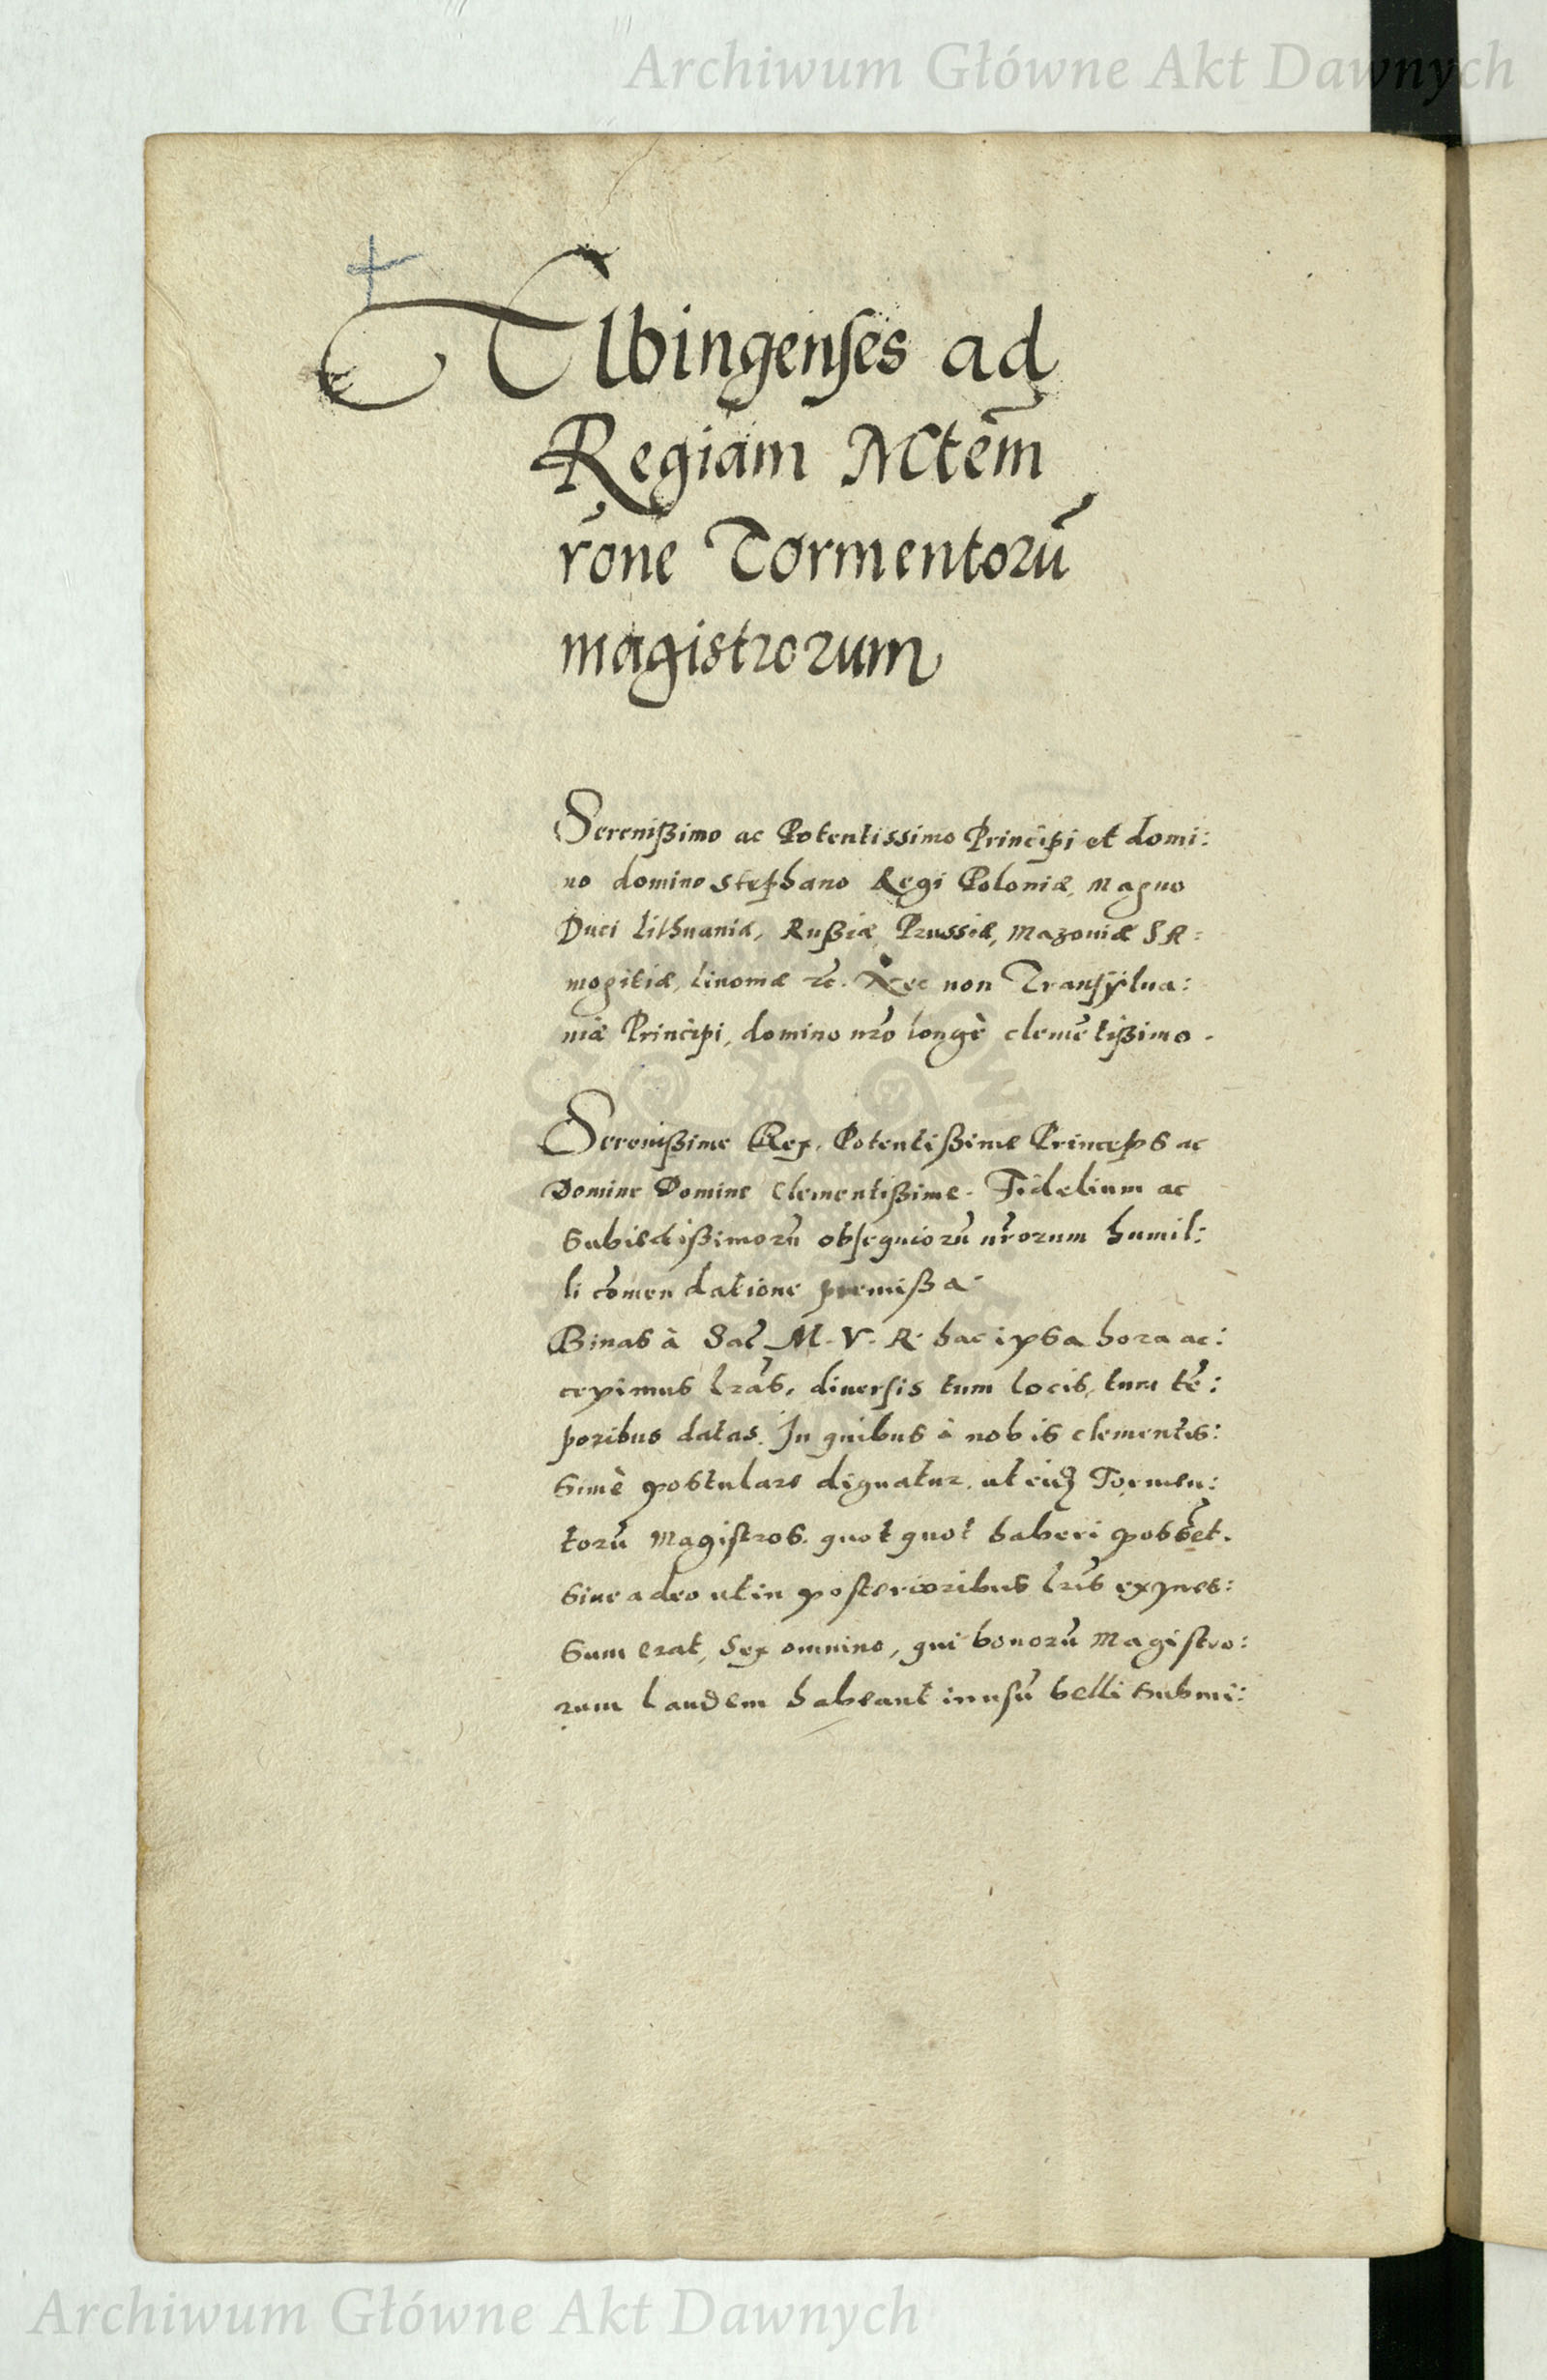 Archiwum Główne Akt Dawnych
Elbingenses ad
Regiam Mtem̄
rōne Tormentorū
magistrorum
Serenißimo ac Potentissimo Principi et domi:
no domino Stephano Regi Poloniæ, Magno
Duci Lithuaniæ, Rußiæ Prussiæ, Mazoviæ SA:
mogitiæ, Livoniæ ꝛc. Nec non Transÿlua:
niæ Principi, domino nr̄o longè clemētißimo.
Serenißime Rex, Potentißime Princeps ac
Domine Domine Clementißime. Fidelium ac
Subiectißimorū obsequiorū nr̄orum humil:
li cōmendatione premißa.
Binas à Sac. M. V. R. hac ipsa hora ac:
cepimus lr̄as, diversis tum locis, tum tē:
poribus datas. In quibus à nobis clementis:
simè postulare dignatur, ut eidē Tormen:
torū Magistros, quot quot haberi possēt.
Sive adeo ut in posterioribus lr̄is expres:
sum erat, sex omnino, qui bonorū Magistro:
rum laudem habeant in usū belli submi:
Archiwum Główne Akt Dawnych